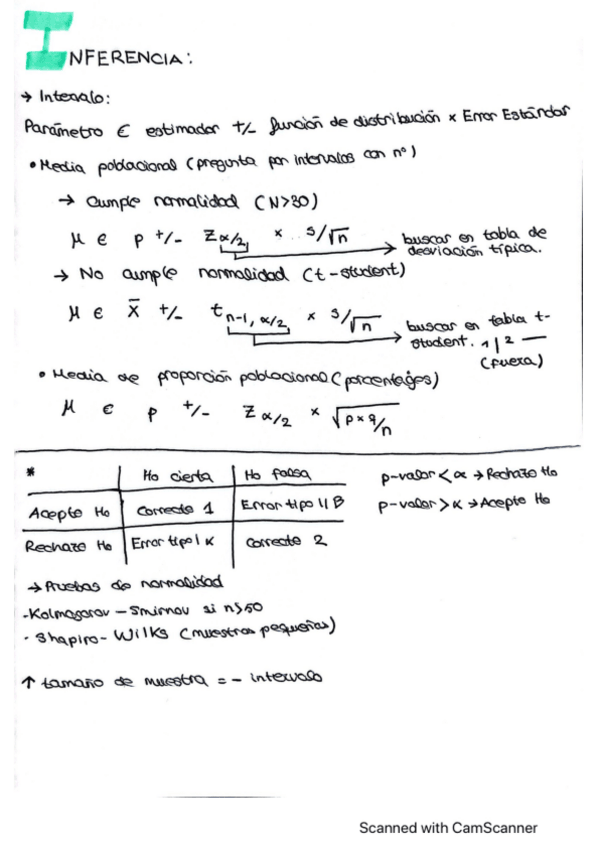 INFERENCIA:
→ Intervalo:
Parámetro ∈ estimador +/- función de distribución × Error Estándar
• Media poblacional (pregunta por intervalos con nº)
→ Cumple normalidad (N>30)
μ ∈ p +/- Z α/2 × s/√n
buscar en tabla de desviación típica.
→ No cumple normalidad (t-student)
μ ∈ x̄ +/- t n-1, α/2 × s/√n
buscar en tabla t-
student. 1 | 2 —
(fuera)
• Media de proporción poblacional (porcentajes)
μ ∈ p +/- Z α/2 × √p×q/n
* | Ho cierta | Ho falsa
Acepto Ho | Correcto 1 | Error tipo II B
Rechazo Ho | Error tipo I α | Correcto 2
p-valor < α → Rechazo Ho
p-valor > α → Acepto Ho
→ Pruebas de normalidad
- Kolmogorov - Smirnov si n≥50
- Shapiro - Wilks (muestras pequeñas)
↑ tamaño de muestra = - intervalo
Scanned with CamScanner